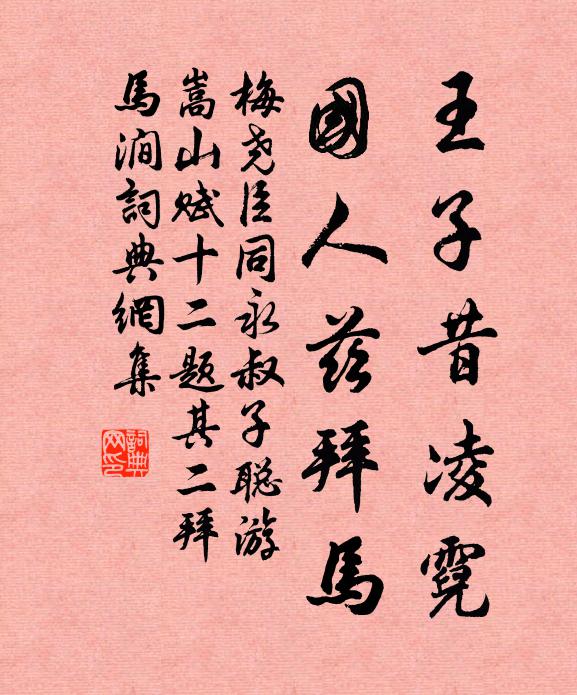 王子昔凌霓
國人茲拜馬
梅堯臣同永叔子聰游
嵩山賦十二題其二拜
馬澗詞典網集
詞典網印